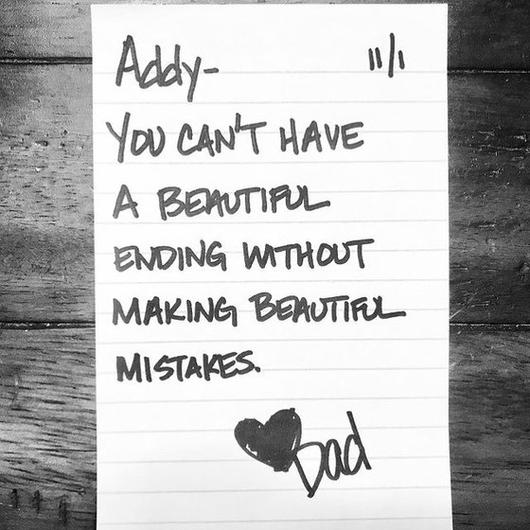 Addy- 11/1
YOU CAN'T HAVE
A BEAUTIFUL
ENDING WITHOUT
MAKING BEAUTIFUL
MISTAKES.
Dad